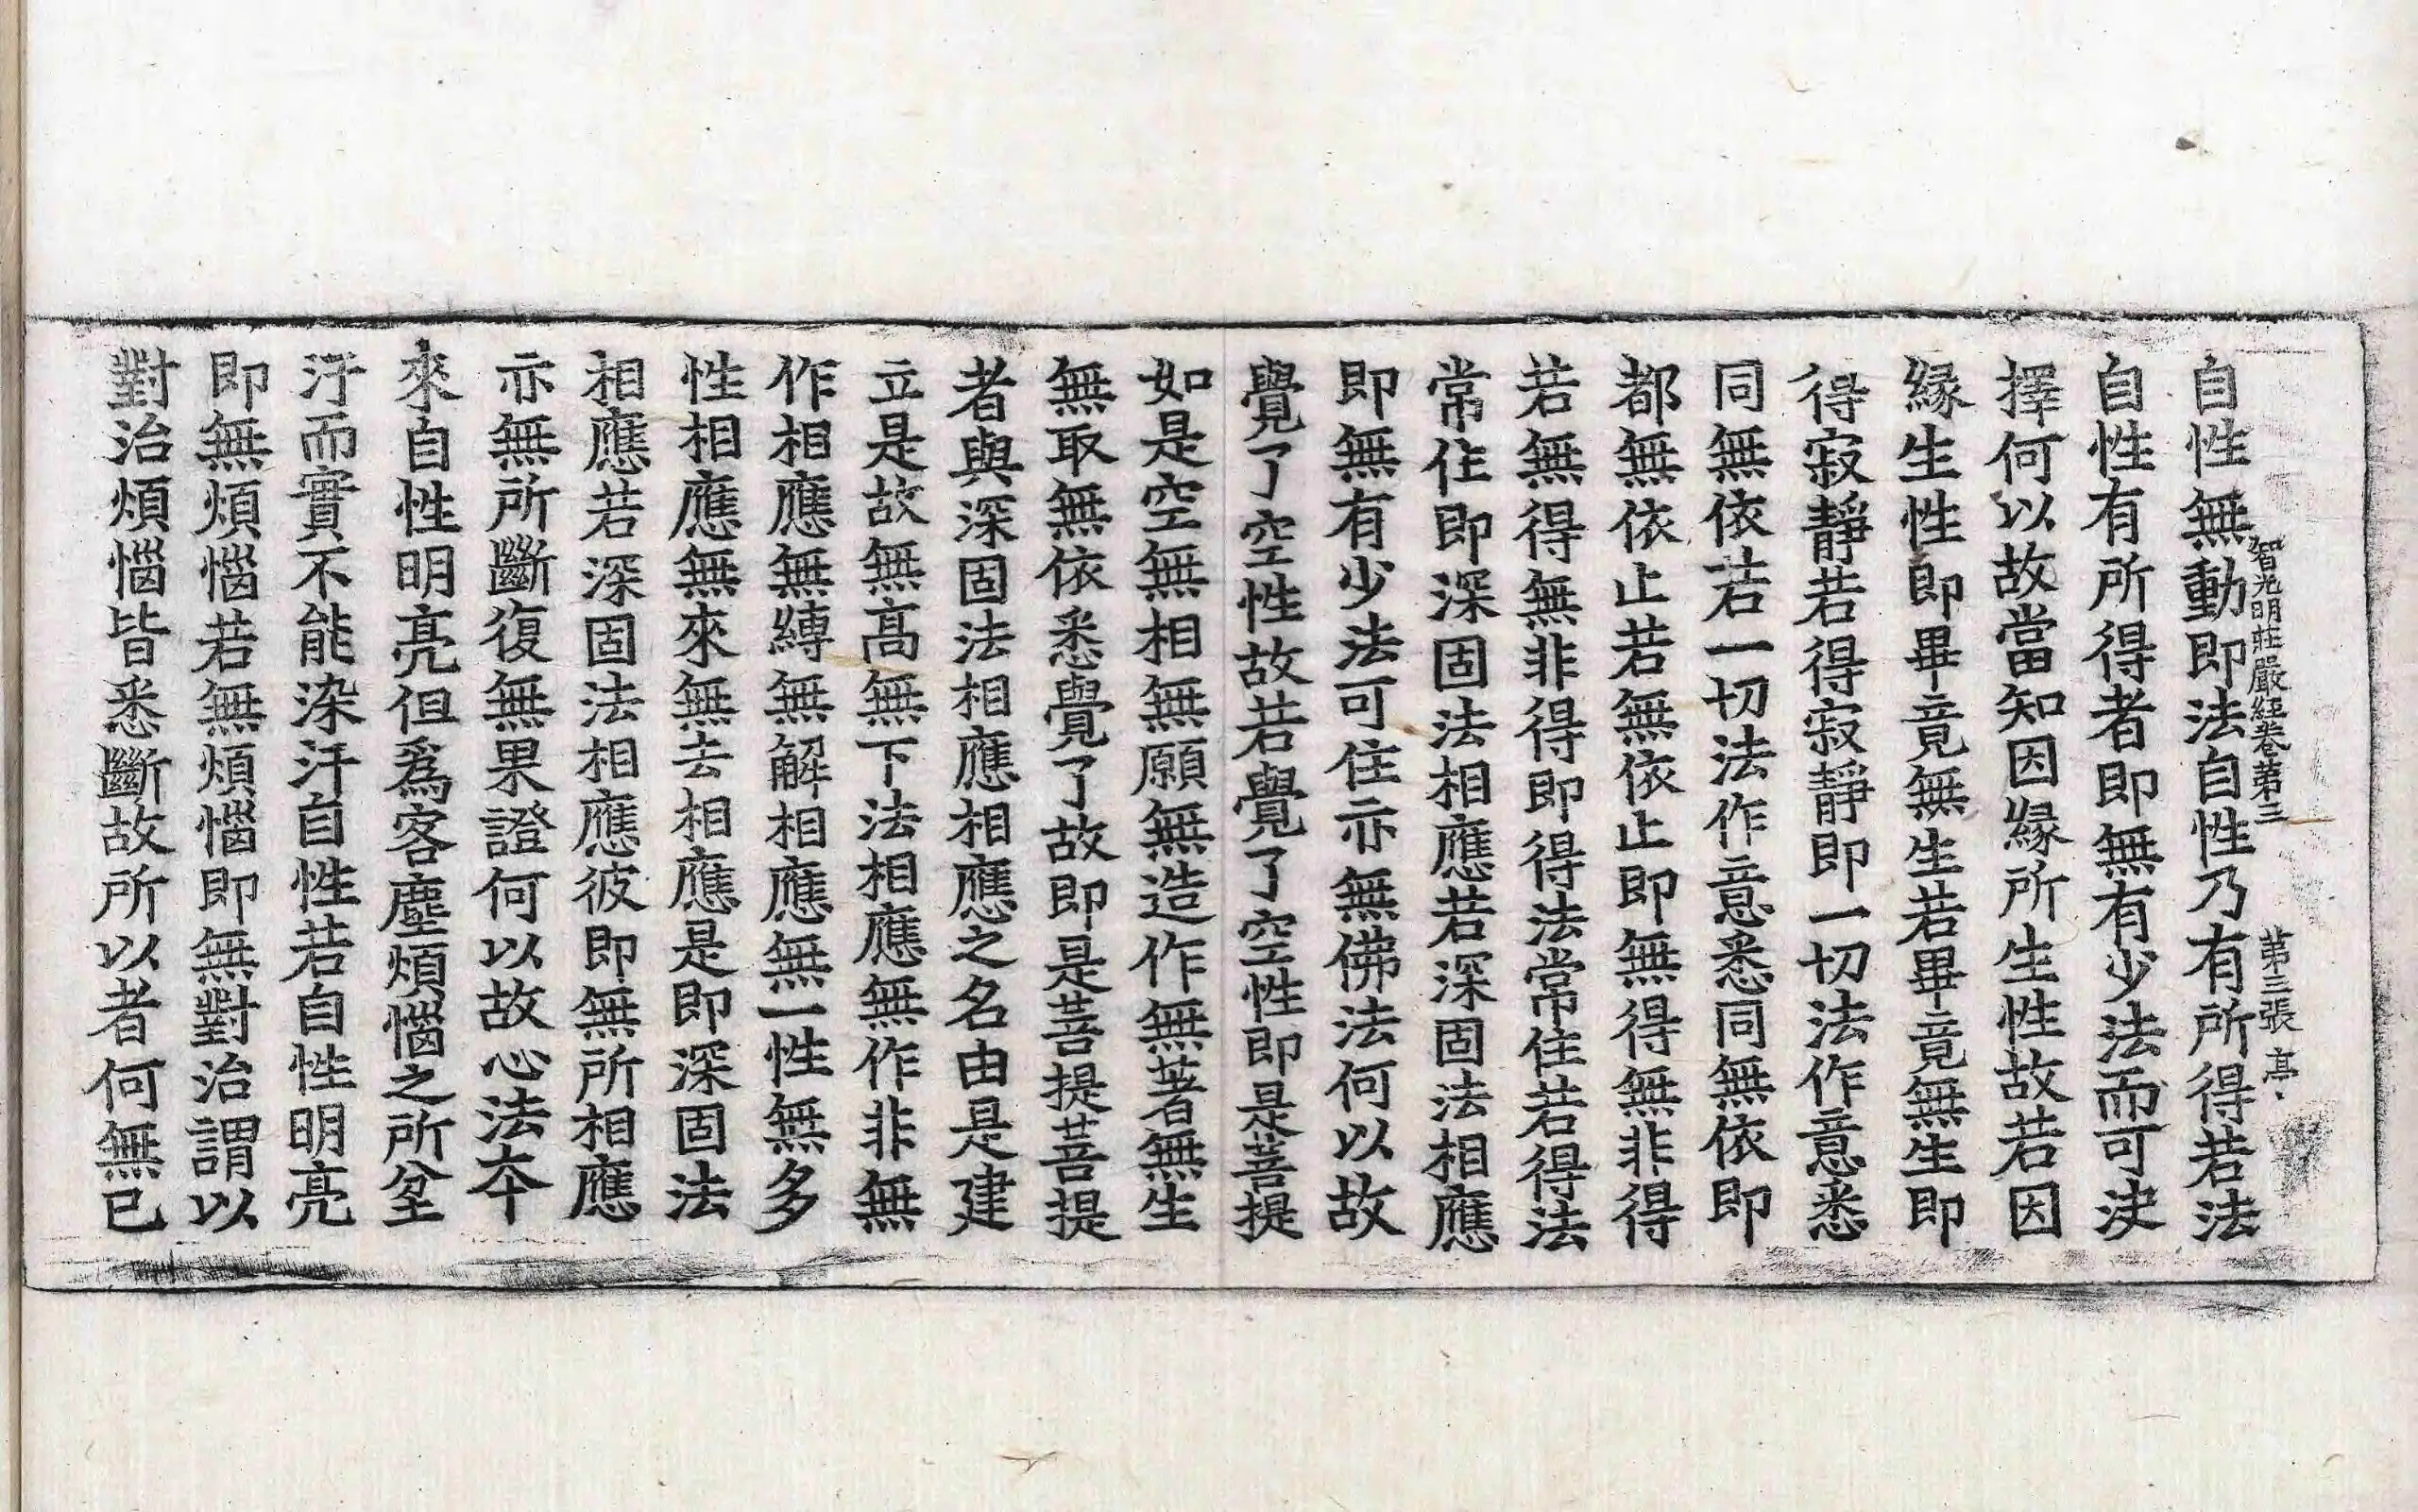 智光明莊嚴經卷第三　第三張　髙
自性無動即法自性乃有所得若法
自性有所得者即無有少法而可決
擇何以故當知因緣所生性故若因
緣生性即畢竟無生若畢竟無生即
得寂靜若得寂靜即一切法作意悉
同無依若一切法作意悉同無依即
都無依止若無依止即無得無非得
若無得無非得即得法常住若得法
常住即深固法相應若深固法相應
即無有少法可住亦無佛法何以故
覺了空性故若覺了空性即是菩提
如是空無相無願無造作無著無生
無取無依悉覺了故即是菩提菩提
者與深固法相應相應之名由是建
立是故無髙無下法相應無作非無
作相應無縛無解相應無一性無多
性相應無來無去相應是即深固法
相應若深固法相應彼即無所相應
亦無所斷復無果證何以故心法夲
來自性明亮但爲客塵煩惱之所坌
汙而實不能染汙自性若自性明亮
即無煩惱若無煩惱即無對治謂以
對治煩惱皆悉斷故所以者何無已